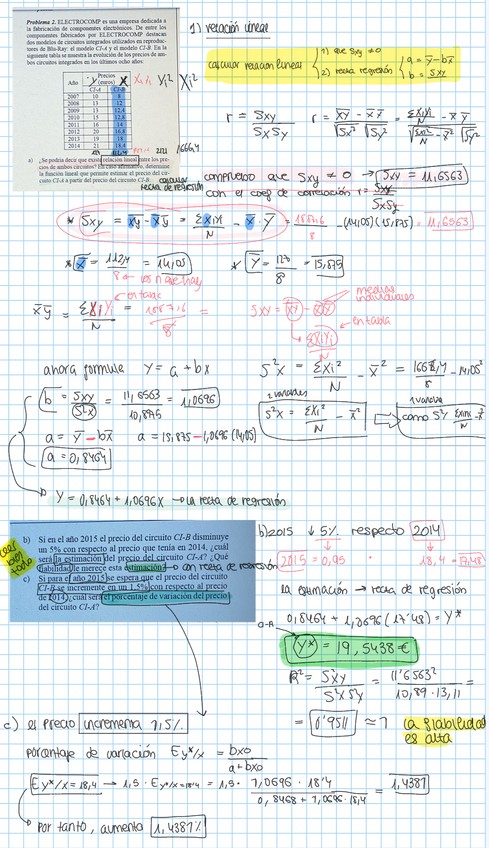 Problema 2. ELECTROCOMP es una empresa dedicada a
la fabricación de componentes electrónicos. De entre los
componentes fabricados por ELECTROCOMP destacan
dos modelos de circuitos integrados utilizados en reproduc-
tores de Blu-Ray: el modelo CI-A y el modelo CI-B. En la
siguiente tabla se muestra la evolución de los precios de am-
bos circuitos integrados en los últimos ocho años.
Precios
Año Y (euros) X Xi Yi Yi² Xi²
CI-A CI-B
2007 10 8
2008 13 12
2009 13 12.4
2010 15 12.8
2011 16 14
2012 20 16.8
2013 19 18
2014 21 18.4
a) ¿Se podría decir que existe relación lineal entre los pre-
cios de ambos circuitos? En caso afirmativo, determine
la función lineal que permite estimar el precio del cir-
cuito CI-A a partir del precio del circuito CI-B.
1) relación lineal
calcular relación lineal
1) que Sxy ≠ 0
2) recta regresión
a = y̅ - bx̅
b = Sxy
r = Sxy / SxSy
calcular recta de regresión
compruebo que Sxy ≠ 0 → Sxy = 11,6563
con el coef de correlación r = Sxy / SxSy
* Sxy = xy - x̅y̅ = ΣXiYi / N - x̅ · y̅ = 1887,6 / 8 - (14,05)(15,875) = 11,6563
* x̅ = 112,4 / 8 = 14,05
* y̅ = 127 / 8 = 15,875
los n que hay
en tabla
xy = ΣXiYi / N = 1887,6 / 8 =
medias individuales
en tabla
ΣXiYi / N
ahora formula Y = a + bx
S²x = ΣXi² / N - x̅² = 1666,4 / 8 - 14,05²
b = Sxy / S²x = 11,6563 / 10,895 = 1,0696
a = y̅ - bx̅ a = 15,875 - 1,0696 (14,05)
a = 0,8464
2 variables
S²x = ΣXi² / N - x̅²
1 variable
Y = 0,8464 + 1,0696x → la recta de regresión
leer bien todo
b) Si en el año 2015 el precio del circuito CI-B disminuye
un 5% con respecto al precio que tenía en 2014, ¿cuál
será la estimación del precio del circuito CI-A? ¿Qué
fiabilidad le merece esta estimación? → con recta de regresión
c) Si para el año 2015 se espera que el precio del circuito
CI-B se incremente en un 1.5% con respecto al precio
de 2014, ¿cuál será el porcentaje de variación del precio
del circuito CI-A?
b) 2015 ↓ 5% respecto 2014
2015 = 0,95 · 18,4 = 17,48
la estimación → recta de regresión
0,8464 + 1,0696 (17'48) = Y*
Y* = 19,5438 €
R² = S²xy / S²xS²y = 11'6563² / 10,89 · 13,11 =
= 0'9511 ≈ 1 la fiabilidad es alta
c) el precio incrementa 1,5%
porcentaje de variación Ey*/x = bx0 / a + bx0
Ey*/x = 18,4 → 1,5 · Ey*/x = 18'4 = 1,5 · 1,0696 · 18'4 / 0,8468 + 1,0696 · 18,4 = 1,4387
Por tanto, aumenta 1,4387%